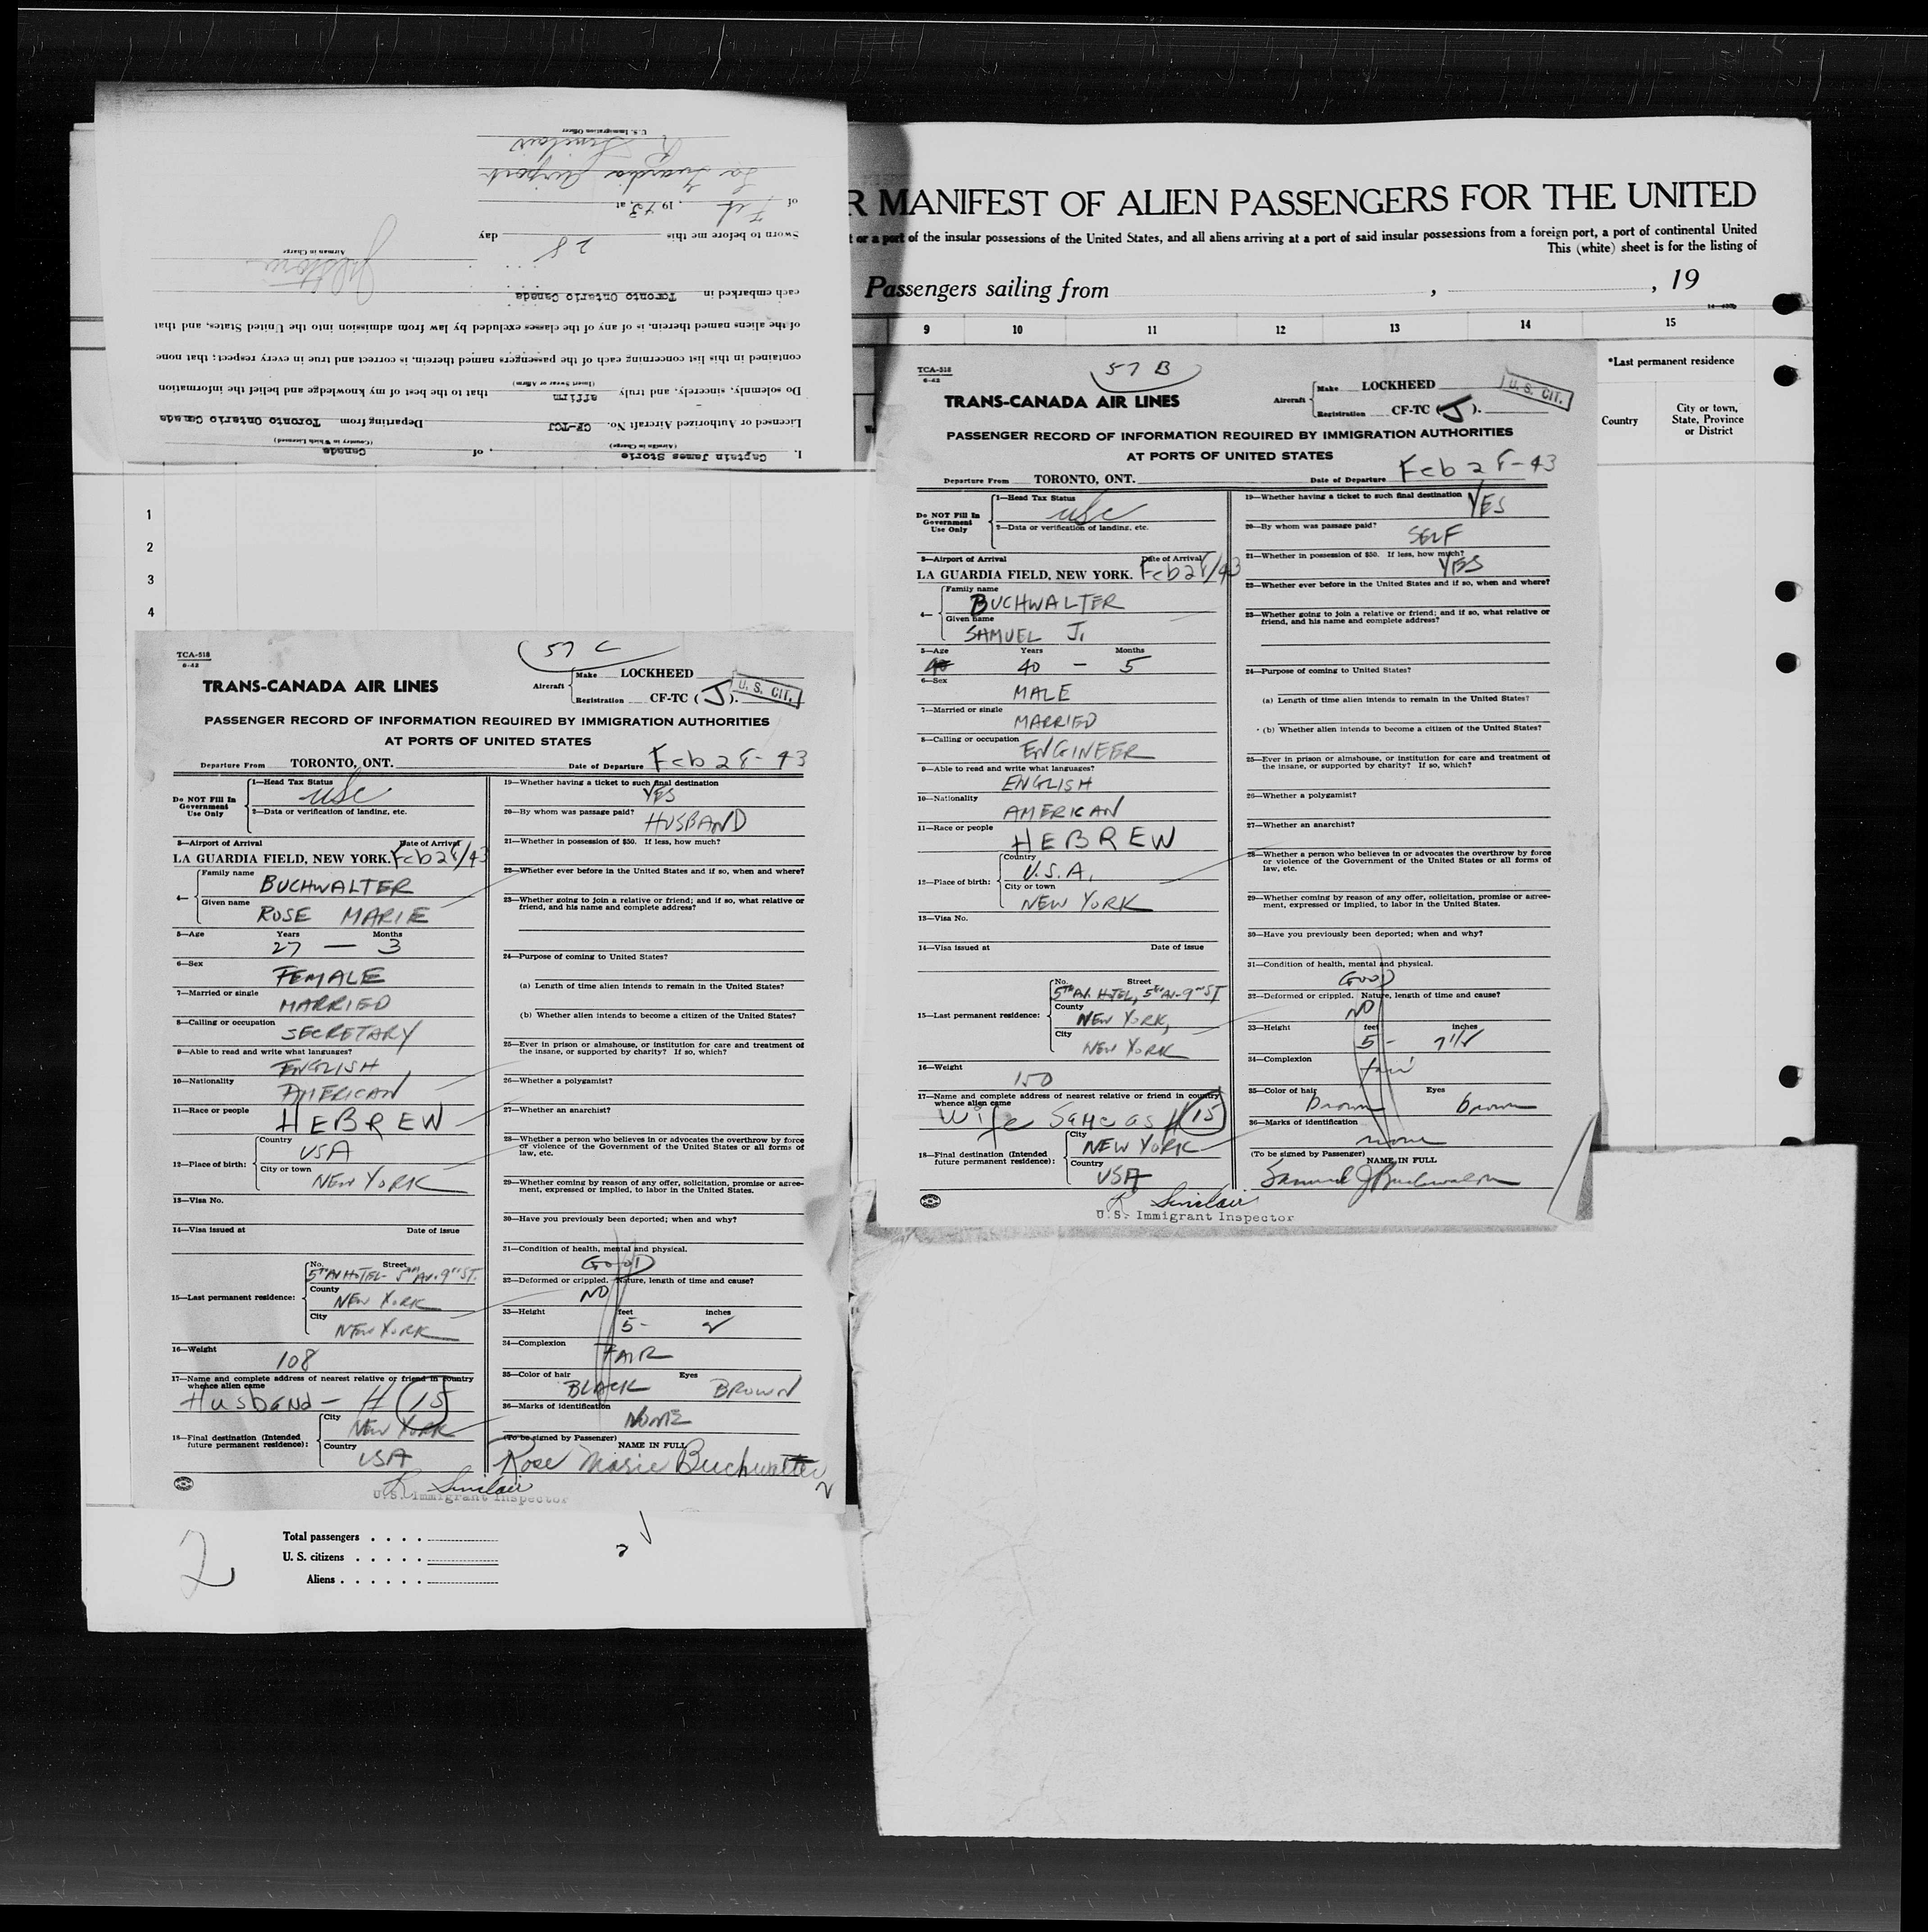 I, Captain James Storie, of Canada
(Airman in Charge) (Country in Which Licensed)
Licensed or Authorized Aircraft No. CF-TCJ Departing from Toronto Ontario Canada
Do solemnly, sincerely, and truly affirm that to the best of my knowledge and belief the information
(Insert Swear or Affirm)
contained in this list concerning each of the passengers named therein, is correct and true in every respect; that none
of the aliens named therein, is of any of the classes excluded by law from admission into the United States, and that
each embarked in Toronto Ontario Canada
Airman in Charge
Sworn to before me this 28 day
of Feb, 1943, at
La Guardia Airport
R Sinclair
U.S. Immigration Officer
R MANIFEST OF ALIEN PASSENGERS FOR THE UNITED
t or a port of the insular possessions of the United States, and all aliens arriving at a port of said insular possessions from a foreign port, a port of continental United
This (white) sheet is for the listing of
Passengers sailing from , , 19
9 10 11 12 13 14 15
*Last permanent residence
Country
City or town, State, Province or District
1
2
3
4
57 C
TCA-518
6-42
TRANS-CANADA AIR LINES
Aircraft Make LOCKHEED
Registration CF-TC (J).
U. S. CIT.
PASSENGER RECORD OF INFORMATION REQUIRED BY IMMIGRATION AUTHORITIES
AT PORTS OF UNITED STATES
Departure From TORONTO, ONT. Date of Departure Feb 28-43
Do NOT Fill In Government Use Only
1—Head Tax Status
USC
2—Data or verification of landing, etc.
3—Airport of Arrival Date of Arrival
LA GUARDIA FIELD, NEW YORK. Feb 28/43
4— Family name
BUCHWALTER
Given name
ROSE MARIE
5—Age Years Months
27 — 3
6—Sex
FEMALE
7—Married or single
MARRIED
8—Calling or occupation
SECRETARY
9—Able to read and write what languages?
ENGLISH
10—Nationality
AMERICAN
11—Race or people
HEBREW
12—Place of birth: Country
USA
City or town
NEW YORK
13—Visa No.
14—Visa issued at Date of issue
15—Last permanent residence: No. Street
5TH AV HOTEL - 5TH AV. 9TH ST.
County
NEW YORK
City
NEW YORK
16—Weight
108
17—Name and complete address of nearest relative or friend in country whence alien came
Husband - # 15
18—Final destination (Intended future permanent residence): City
NEW YORK
Country
USA
R Sinclair
U.S. Immigrant Inspector
19—Whether having a ticket to such final destination
YES
20—By whom was passage paid?
HUSBAND
21—Whether in possession of $50. If less, how much?
22—Whether ever before in the United States and if so, when and where?
23—Whether going to join a relative or friend; and if so, what relative or friend, and his name and complete address?
24—Purpose of coming to United States?
(a) Length of time alien intends to remain in the United States?
(b) Whether alien intends to become a citizen of the United States?
25—Ever in prison or almshouse, or institution for care and treatment of the insane, or supported by charity? If so, which?
26—Whether a polygamist?
27—Whether an anarchist?
28—Whether a person who believes in or advocates the overthrow by force or violence of the Government of the United States or all forms of law, etc.
29—Whether coming by reason of any offer, solicitation, promise or agreement, expressed or implied, to labor in the United States.
30—Have you previously been deported; when and why?
31—Condition of health, mental and physical.
GOOD
32—Deformed or crippled. Nature, length of time and cause?
NO
33—Height feet inches
5- 2
34—Complexion
FAIR
35—Color of hair Eyes
BLACK BROWN
36—Marks of identification
NONE
(To be signed by Passenger)
NAME IN FULL
Rose Marie Buchwalter
57 B
TCA-518
6-42
TRANS-CANADA AIR LINES
Aircraft Make LOCKHEED
Registration CF-TC (J).
U. S. CIT.
PASSENGER RECORD OF INFORMATION REQUIRED BY IMMIGRATION AUTHORITIES
AT PORTS OF UNITED STATES
Departure From TORONTO, ONT. Date of Departure Feb 28-43
Do NOT Fill In Government Use Only
1—Head Tax Status
USC
2—Data or verification of landing, etc.
3—Airport of Arrival Date of Arrival
LA GUARDIA FIELD, NEW YORK. Feb 28/43
4— Family name
BUCHWALTER
Given name
SAMUEL J.
5—Age Years Months
40 — 5
6—Sex
MALE
7—Married or single
MARRIED
8—Calling or occupation
ENGINEER
9—Able to read and write what languages?
ENGLISH
10—Nationality
AMERICAN
11—Race or people
HEBREW
12—Place of birth: Country
U.S.A.
City or town
NEW YORK
13—Visa No.
14—Visa issued at Date of issue
15—Last permanent residence: No. Street
5TH AV. HOTEL, 5TH AV-9TH ST
County
NEW YORK,
City
NEW YORK
16—Weight
150
17—Name and complete address of nearest relative or friend in country whence alien came
Wife Same as # 15
18—Final destination (Intended future permanent residence): City
NEW YORK
Country
USA
R Sinclair
U.S. Immigrant Inspector
19—Whether having a ticket to such final destination
YES
20—By whom was passage paid?
SELF
21—Whether in possession of $50. If less, how much?
YES
22—Whether ever before in the United States and if so, when and where?
23—Whether going to join a relative or friend; and if so, what relative or friend, and his name and complete address?
24—Purpose of coming to United States?
(a) Length of time alien intends to remain in the United States?
(b) Whether alien intends to become a citizen of the United States?
25—Ever in prison or almshouse, or institution for care and treatment of the insane, or supported by charity? If so, which?
26—Whether a polygamist?
27—Whether an anarchist?
28—Whether a person who believes in or advocates the overthrow by force or violence of the Government of the United States or all forms of law, etc.
29—Whether coming by reason of any offer, solicitation, promise or agreement, expressed or implied, to labor in the United States.
30—Have you previously been deported; when and why?
31—Condition of health, mental and physical.
GOOD
32—Deformed or crippled. Nature, length of time and cause?
NO
33—Height feet inches
5- 7 1/2
34—Complexion
fair
35—Color of hair Eyes
brown brown
36—Marks of identification
none
(To be signed by Passenger)
NAME IN FULL
Samuel J Buchwalter
2
Total passengers . . . .
U. S. citizens . . . . .
Aliens . . . . . .
2